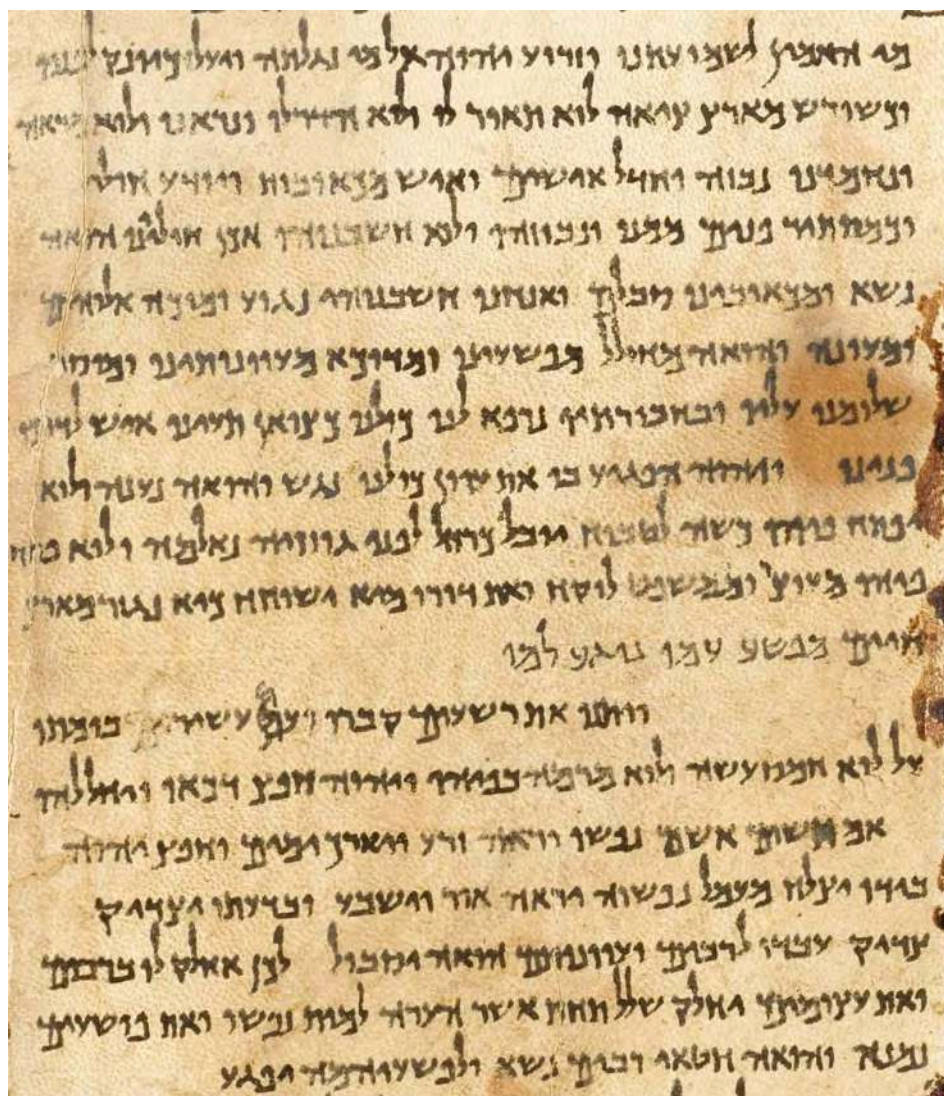 מי האמין לשמועתנו וזרוע יהוה אל מי נגלתה ויעל כיונק לפניו
וכשורש מארץ ציה לוא תואר לו ולוא הדר לו ונראנו ולוא מראה
ונחמדנו נבזה וחדל אישים ואיש מכאובות ויודע חולי
וכמסתיר פנים ממנו ונבוזהו ולוא חשבנוהו אכן חוליינו הואה
נשא ומכאובינו סבלם ואנחנו חשבנוהו נגוע ומוכה אלוהים
ומעונה והואה מחולל מפשעינו ומדוכא מעוונותינו ומוסר
שלומנו עליו ובחבורתיו נרפא לנו כולנו כצואן תעינו איש לדרכו
פנינו ויהוה הפגיע בו את עוון כולנו נגש והואה נענה ולוא
יפתח פיהו כשה לטבוח יובל כרחל לפני גוזזיה נאלמה ולוא פתח
פיהו מעוצר וממשפט לוקח ואת דורו מיא ישוחח כיא נגזר מארץ
חיים מפשע עמו נוגע למו
ויתנו את רשעים קברו ועם עשיר בומתו
על לוא חמס עשה ולוא מרמה בפיהו ויהוה חפץ דכאו ויחללהו
אם תשים אשם נפשו יראה זרע ויארך ימים וחפץ יהוה
בידו יצלח מעמל נפשוה יראה אור וישבע ובדעתו יצדיק
צדיק עבדו לרבים ועוונותם הואה יסבול לכן אחלק לו ברבים
ואת עצומים יחלק שלל תחת אשר הערה למות נפשו ואת פושעים
נמנה והואה חטאי רבים נשא ולפשעיהמה יפגע